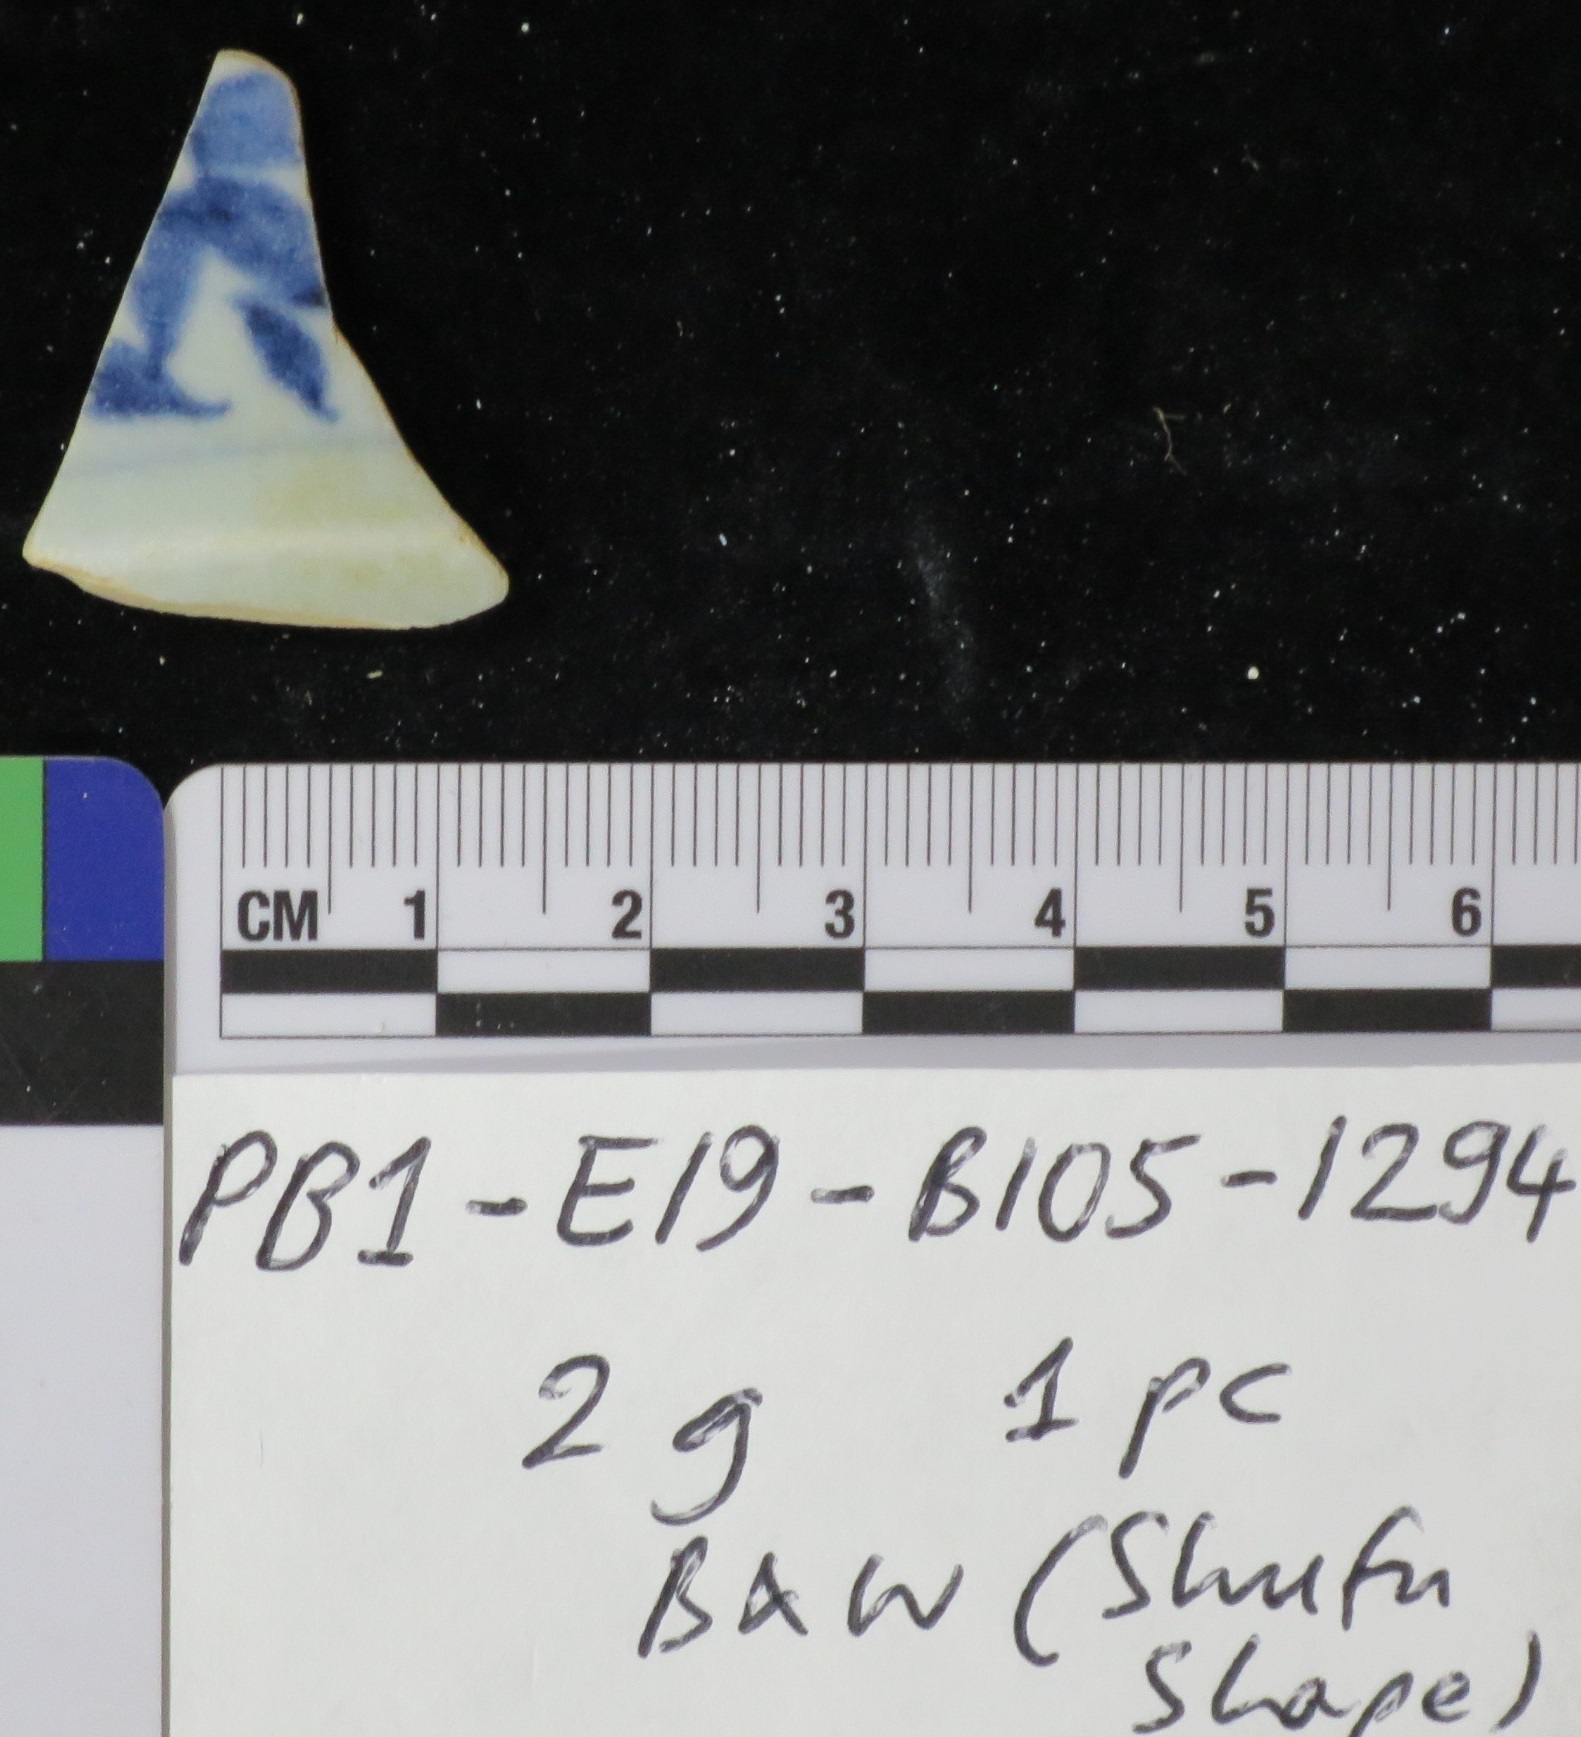 CM 1 2 3 4 5 6
PB1-E19-B105-1294
2 g 1 pc
B&W (Shufu
Shape)